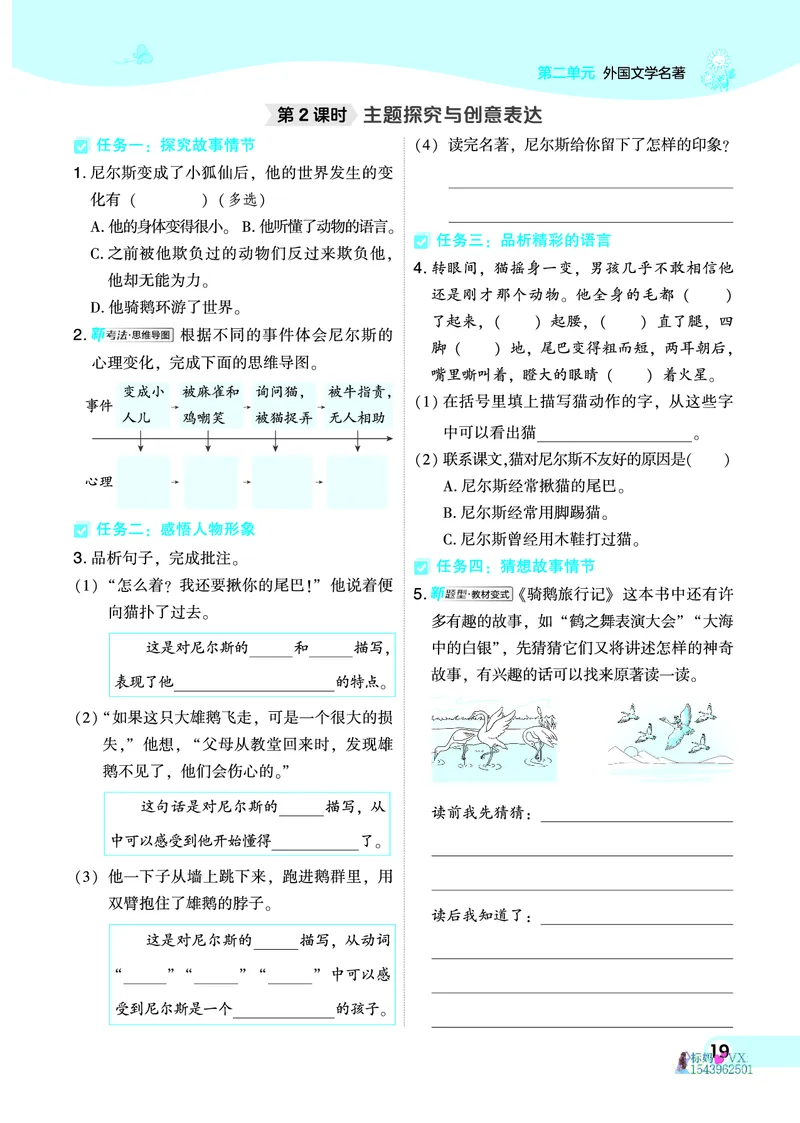 第二单元 外国文学名著
第2课时 主题探究与创意表达
任务一：探究故事情节
1. 尼尔斯变成了小狐仙后，他的世界发生的变
化有（ ）（多选）
A. 他的身体变得很小。 B. 他听懂了动物的语言。
C. 之前被他欺负过的动物们反过来欺负他，
他却无能为力。
D. 他骑鹅环游了世界。
2. 新考法·思维导图 根据不同的事件体会尼尔斯的
心理变化，完成下面的思维导图。
事件
变成小
人儿
被麻雀和
鸡嘲笑
询问猫，
被猫捉弄
被牛指责，
无人相助
心理
任务二：感悟人物形象
3. 品析句子，完成批注。
（1）“怎么着？我还要揪你的尾巴！”他说着便
向猫扑了过去。
这是对尼尔斯的______和______描写，
表现了他______________________的特点。
（2）“如果这只大雄鹅飞走，可是一个很大的损
失，”他想，“父母从教堂回来时，发现雄
鹅不见了，他们会伤心的。”
这句话是对尼尔斯的______描写，从
中可以感受到他开始懂得____________了。
（3）他一下子从墙上跳下来，跑进鹅群里，用
双臂抱住了雄鹅的脖子。
这是对尼尔斯的______描写，从动词
“______”“______”“______”中可以感
受到尼尔斯是一个______________的孩子。
（4）读完名著，尼尔斯给你留下了怎样的印象？
任务三：品析精彩的语言
4. 转眼间，猫摇身一变，男孩几乎不敢相信他
还是刚才那个动物。他全身的毛都（ ）
了起来，（ ）起腰，（ ）直了腿，四
脚（ ）地，尾巴变得粗而短，两耳朝后，
嘴里嘶叫着，瞪大的眼睛（ ）着火星。
（1）在括号里填上描写猫动作的字，从这些字
中可以看出猫______________________。
（2）联系课文，猫对尼尔斯不友好的原因是（ ）
A. 尼尔斯经常揪猫的尾巴。
B. 尼尔斯经常用脚踢猫。
C. 尼尔斯曾经用木鞋打过猫。
任务四：猜想故事情节
5. 新题型·教材变式《骑鹅旅行记》这本书中还有许
多有趣的故事，如“鹤之舞表演大会”“大海
中的白银”，先猜猜它们又将讲述怎样的神奇
故事，有兴趣的话可以找来原著读一读。
读前我先猜猜：
读后我知道了：
19
标妈 VX
1543962501